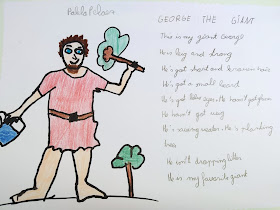 GEORGE THE GIANT
This is my giant George
He is big and strong
He's got short and brown hair
He's got a small beard
He's got blue eyes. He hasn't got glasses
He hasn't got wig
He's saving water. He's planting
trees
He isn't dropping litter
He is my favourite giant